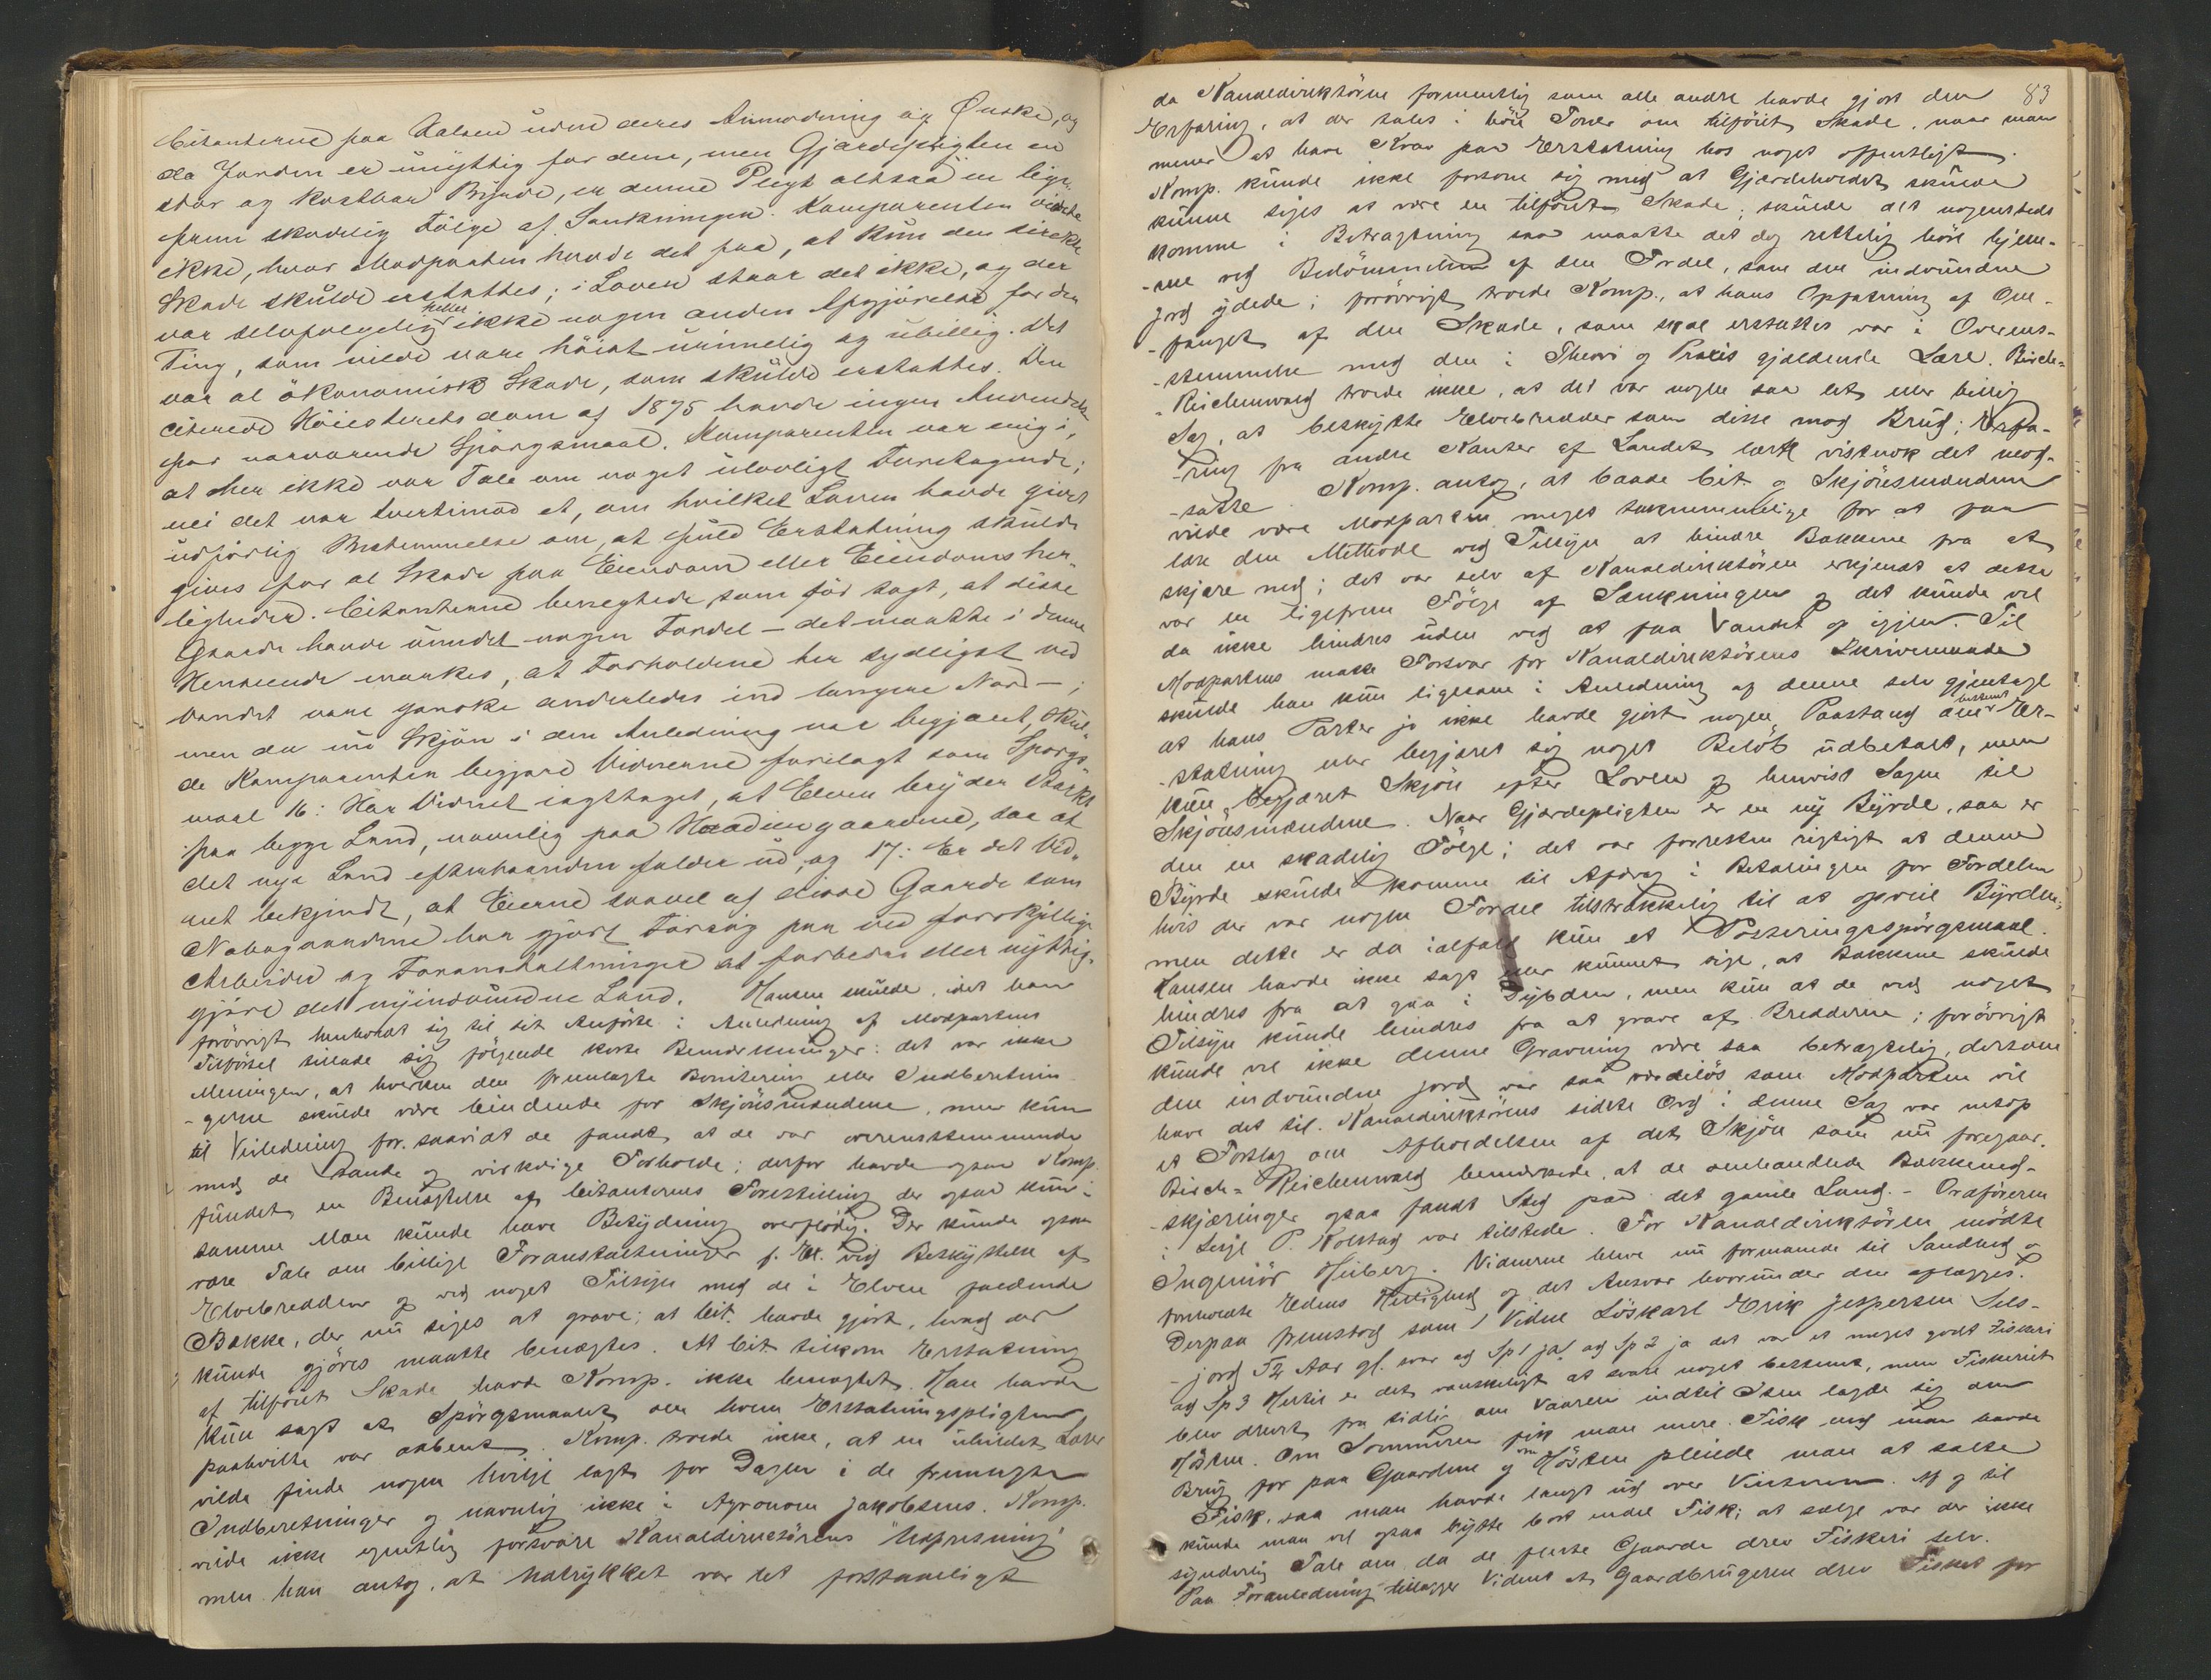 Citanterne paa Halsen uden deres Anmodning og Ønske, og
da Jorden er unyttig for dem, men Gjærdepligten en
stor og kostbar Byrde, er denne Pligt altsaa en lige-
frem skadelig Følge af Sænkningen. Komparenten vidste
ikke, hvor Modparten havde det fra, at kun den direkte
Skade skulde erstattes; i Loven staar det ikke, og der
var selvfølgelig heller ikke nogen anden Afgjørelse for den
Ting, som vilde være höist urimelig og ubillig. Det
var al økonomisk Skade, som skulde erstattes. Den
citerede Höiesteretsdom af 1875 havde ingen Anvendelse
paa nærværende Spörgsmaal. Komparenten var enig i,
at her ikke var Tale om noget ulovligt Foretagende;
nei det var tvertimod et, om hvilket Loven havde givet
udförlig Bestemmelse om, at fuld Erstatning skulde
gives for al Skade paa Eiendom eller Eiendoms her-
ligheder. Citanterne benegtede, som för sagt, at disse
Gaarde havde vundet nogen Fordel – det maatte i denne
Henseende mærkes, at Forholdene her sydligst ved
Vandet vare ganske anderledes end længere Nord –;
men da nu Skjøn i den Anledning var begjært, skul-
de Komparenten begjære Vidnerne forelagt som Spörgs-
maal 16: Har Vidnet iagttaget, at Elven bryder stærkt
paa begge Land, navnlig paa gaardene, saa at
det nye Land efterhaanden falder ud, og 17: Er det Vid-
net bekjendt, at Eierne saavel af disse Gaarde som
Nabogaardene har gjort Forsög paa ved forskjellige
Arbeider og Foranstaltninger at forbedre eller nyttig-
gjöre det nyindvundne Land. Hansen skulde, idet han
forövrigt henholdt sig til sit Anförte i Anledning af Modpartens
Tilförsel tillade sig fölgende korte Bemærkninger: det var ikke
Meningen, at hverken den fremlagte Bonitering eller Indberetnin-
-gerne skulde være bindende for Skjönsmændene, men kun
til Veiledning for saavidt de fandt, at de var overensstemmende
med de sande og virkelige Forholde; derfor havde ogsaa Komp.
fundet en Benægtelse af Citanternes Forestilling der ogsaa kun i
samme Maa kunde have Betydning overflödig. Der kunde ogsaa
være Tale om billige Foranstaltninger f. Ex. ved Beskyttelse af
Elvebredden og ved noget Tilsyn med de i Elven faldende
Bække, der nu siges at grave; at Cit. havde gjort, hvad der
kunde gjöres maatte benægtes. At Cit. tilkom Erstatning
af tilföiet Skade havde Komp. ikke benægtet. Han havde
kun sagt at Spörgsmaalet om hvem Erstatningspligten
paahvilte var aabent. Komp. troede ikke, at en uhildet Læser
vilde finde nogen Hvilje lagt for Dagen i de fremlagte
Indberetninger og navnlig ikke i Agronom Jakobsens. Komp.
vilde ikke egentlig forsvare Kanaldirectörens "Udpresning"
men han antog, at Udtrykket var let forstaaeligt
83
da Kanaldirektören formentlig som alle andre havde gjort den
Erfaring, at der tales i höie Toner om tilföiet Skade, naar man
mener at have Krav paa Erstatning hos noget offentligt.
Komp. kunde ikke forsone sig med at Gjærdeholdet skulde
kunne siges at være en tilföiet Skade; skulde det nogensteds
komme i Betragtning saa maatte det dog rettelig höre hjem-
-me ved Bedömmelsen af den Fordel, som den indvundne
Jord ydede; forövrigt troede Komp., at hans Opfatning af Om-
-fanget af den Skade, som skal erstattes var i Overens-
-stemmelse med den i Theori og Praxis gjældende Lære. Birch-
-Reichenwald troede ikke, at det var nogen saa let eller billig
Sag, at beskytte Elvebredder som disse mod Brud; Erfa-
-ring fra andre Kanter af Landet lærte vistnok det mod-
-satte. Komp. antog, at baade Cit. og Skjönsmændene
vilde være Modparten meget taknemmelige for at faa
lære den Methode ved Tilsyn at hindre Bækkene fra at
skjære ned; det var selv af Kanaldirektören erkjendt at dette
var en ligefrem Fölge af Sænkningen og det kunde vel
da ikke hindres uden ved at faa Vandet op igjen. Til
Modpartens Forsvar for Kanaldirektörens Skrivemaade
skulde han kun ligesom i Anledning af denne selv gjentage
at hans Parter jo ikke havde gjort nogen Paastand om bestemt Er-
-statning eller begjæret sig noget Belöb udbetalt, men
kun begjæret Skjön efter Loven og henvist Sagen til
Skjönsmændene. Naar Gjærdepligten er en ny Byrde, saa er
den en skadelig Fölge; det var forresten rigtigt at denne
Byrde skulde komme til Afdrag i Betalingen for Fordelen
hvis der var nogen Fordel tilstrækkelig til at opveie Byrden;
men dette er da ialfald kun et Posteringsspörgsmaal.
Hansen havde ikke sagt eller kunnet sige, at Bækkene skulde
hindres fra at gaa i Dybden, men kun at de ved noget
Tilsyn kunde hindres fra at grave af Bredderne; forövrigt
kunde vel ikke denne Gravning være saa betragtelig, dersom
den indvundne Jord var saa værdilös som Modparten vil
have det til. Kanaldirektörens sidste Ord i denne Sag var netop
et Forslag om Afholdelsen af det Skjön som nu foregaar.
Birch-Reichenwald bemærkede, at de omhandlede Bækkened-
-skjæringer ogsaa fandt Sted paa det gamle Land. – Ordföreren
i Lesje P. Kolstad var tilstede. For Kanaldirektören mödte
Ingeniör Heiberg. Vidnerne bleve nu formanede til Sandhed og
foreholdte Edens Hellighed og det Ansvar hvorunder den aflægges.
Derpaa fremstod som 1 Vidne Löskarl Erik Jespersen Sels-
-jord 52 Aar gl. svar ad Sp 1 ja! ad Sp 2 ja det var et meget godt Fiskeri
ad Sp 3 Hertil er det vanskeligt at svare noget bestemt, men Fiskeriet
blev drevet fra tidlig om Vaaren indtil Isen lagde sig om
Hösten. Om Sommeren fik man mere Fisk end man havde
Brug for paa Gaardene og om Hösten pleiede man at salte
Fisk, saa man havde langt ud over Vinteren. Af og til
kunde man vel ogsaa bytte bort endel Fisk; at sælge var der ikke
synderlig Tale om da de fleste Gaarde drev Fiskeri selv.
Paa Foranledning tillægger Vidnet at Gaardbrugerne drev Fiskeri for